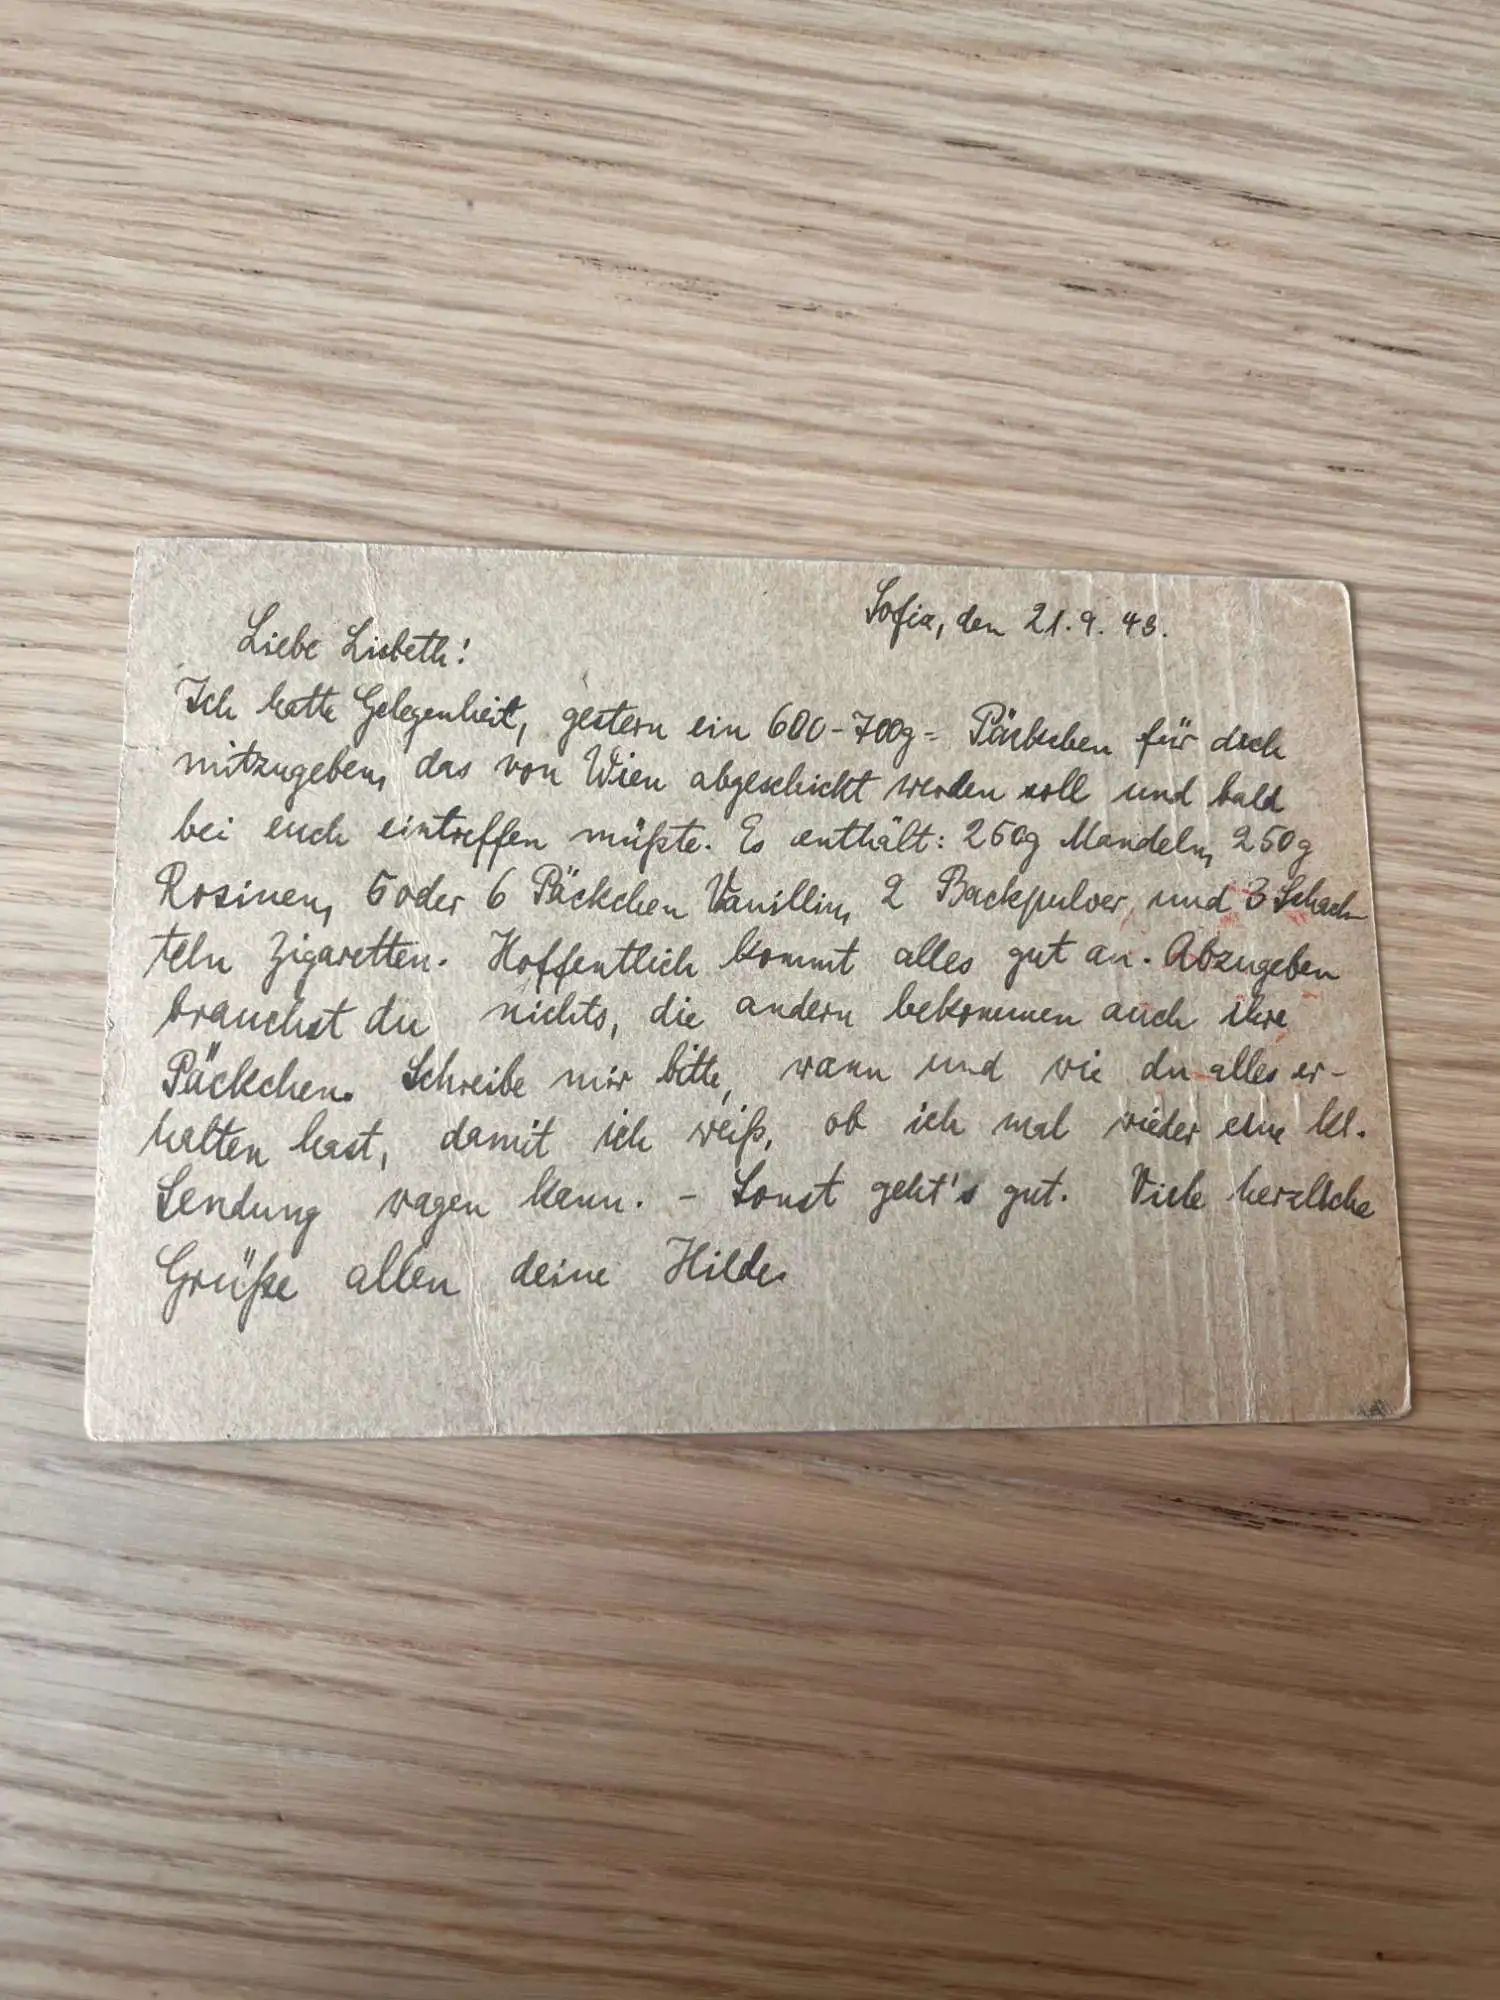 Sofia, den 21.9.43.
Liebe Lisbeth!
Ich hatte Gelegenheit, gestern ein 600-700g- Päckchen für dich
mitzugeben, das von Wien abgeschickt werden soll und bald
bei euch eintreffen müßte. Es enthält: 250g Mandeln, 250g
Rosinen, 5 oder 6 Päckchen Vanillin, 2 Backpulver, und 3 Schach-
teln Zigaretten. Hoffentlich kommt alles gut an. Abzugeben
brauchst du nichts, die andern bekommen auch ihre
Päckchen. Schreibe mir bitte, wann und wie du alles er-
halten hast, damit ich weiß, ob ich mal wieder eine kl.
Sendung wagen kann. - Sonst geht's gut. Viele herzliche
Grüße allen deine Hilde.